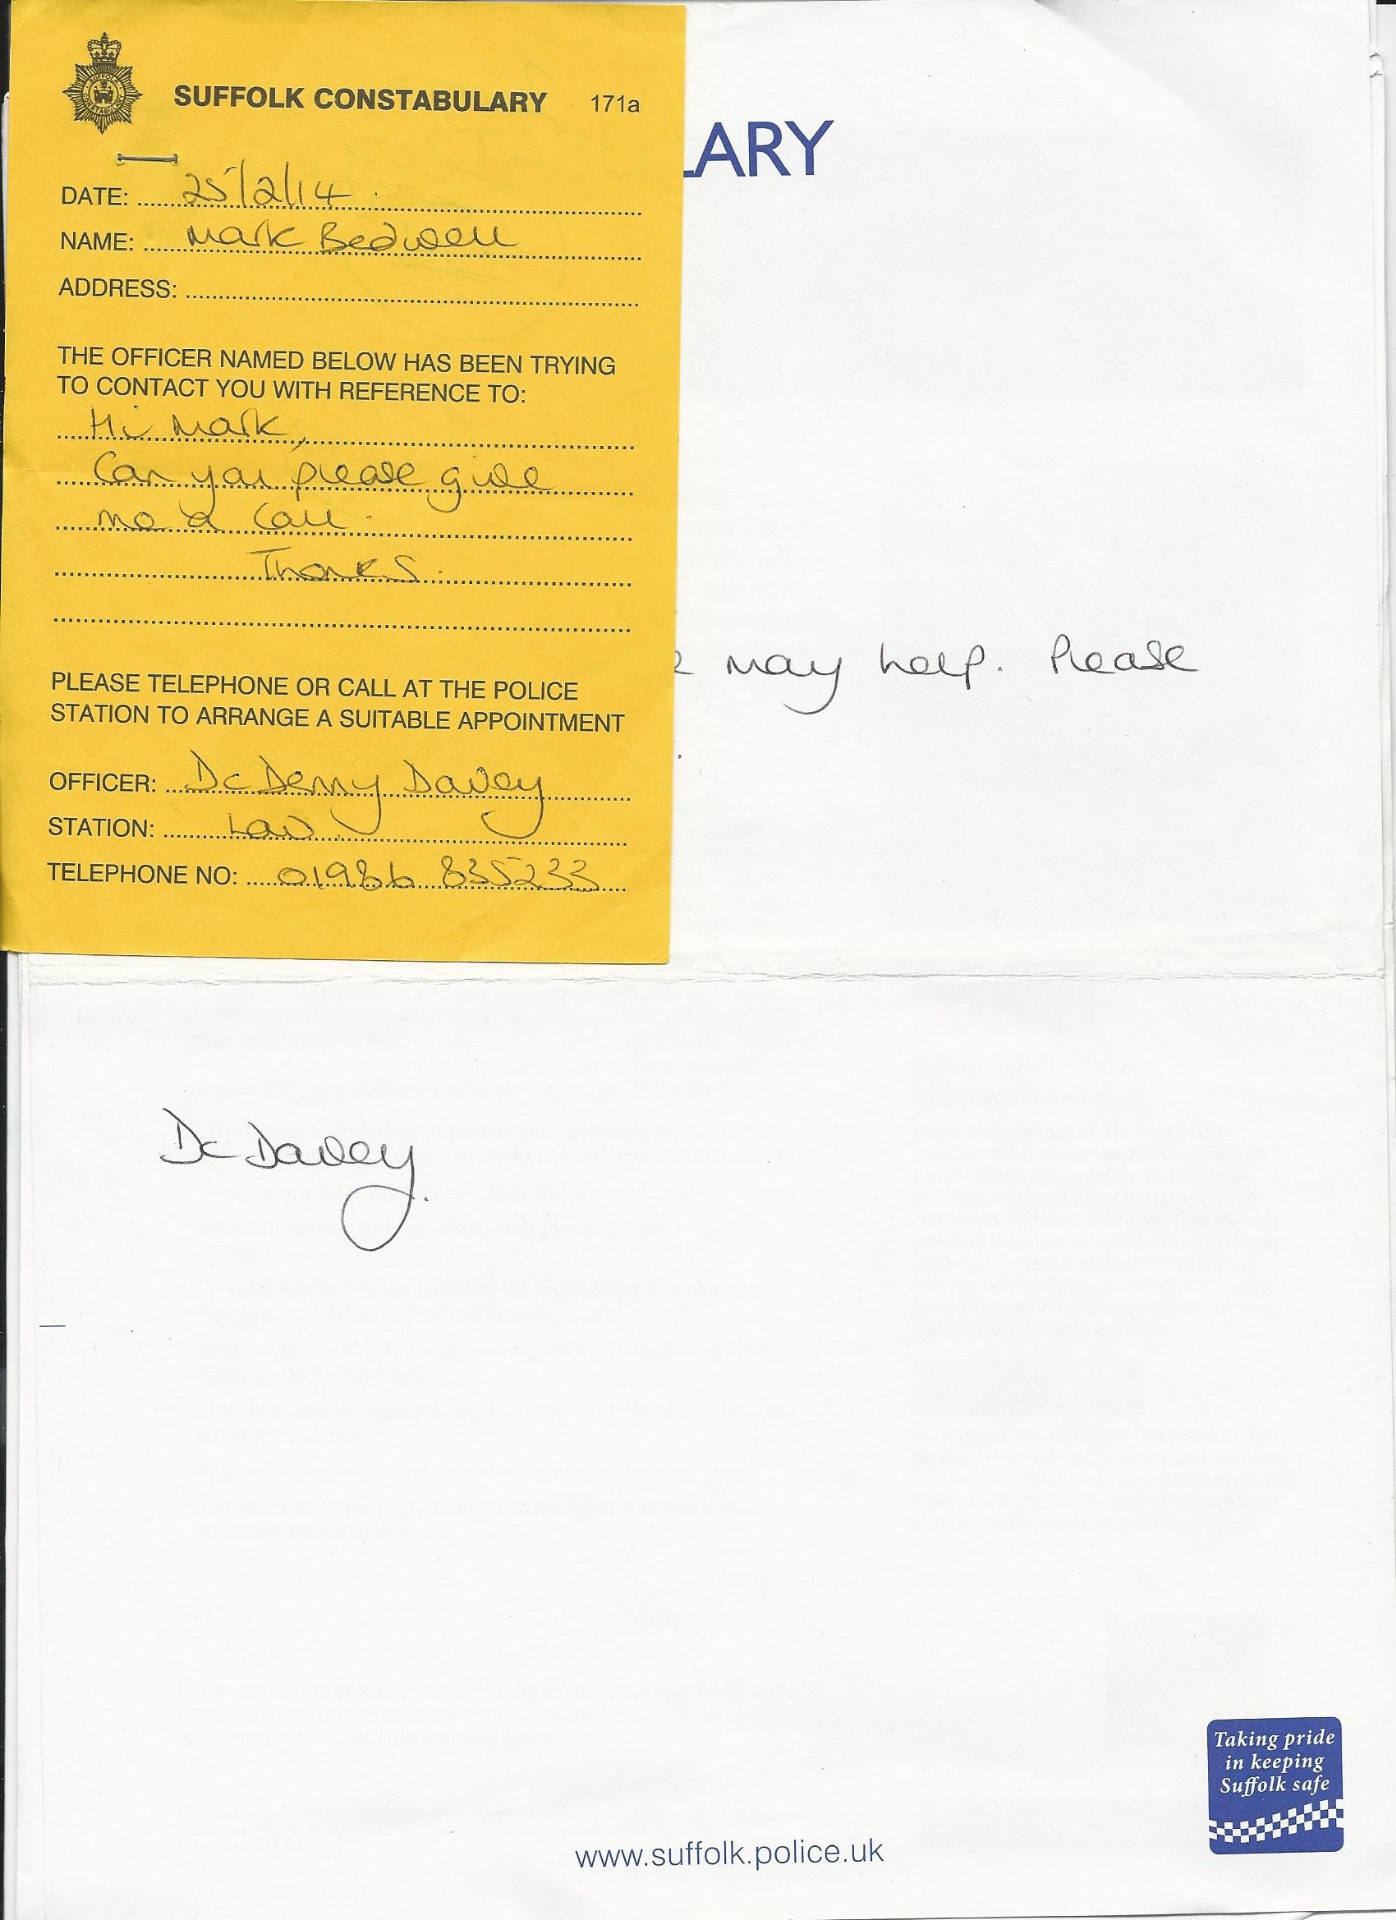 SUFFOLK CONSTABULARY 171a
DATE: 25/2/14
NAME: Mark Bedwell
ADDRESS:
THE OFFICER NAMED BELOW HAS BEEN TRYING
TO CONTACT YOU WITH REFERENCE TO:
Hi Mark,
Can you please give
me a call.
Thanks.
PLEASE TELEPHONE OR CALL AT THE POLICE
STATION TO ARRANGE A SUITABLE APPOINTMENT
OFFICER: Dc Denny Davey
STATION: Low
TELEPHONE NO: 01986 835233
LARY
may help. Please
Dc Davey.
Taking pride
in keeping
Suffolk safe
www.suffolk.police.uk